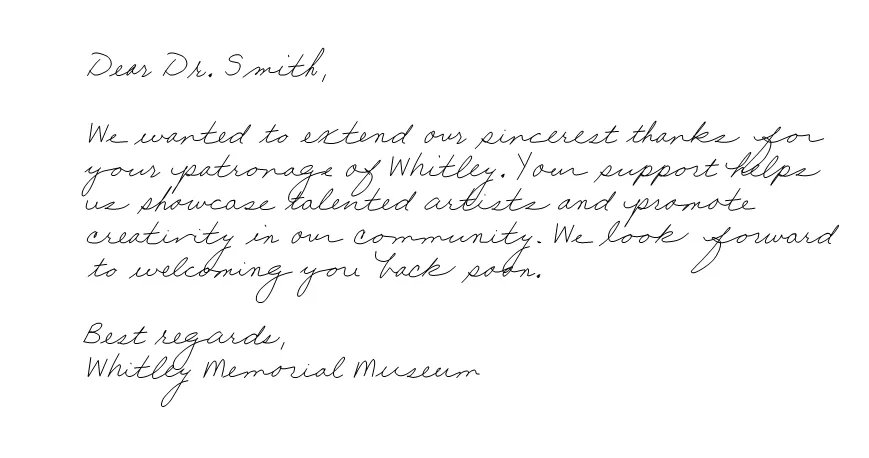 Dear Dr. Smith,
We wanted to extend our sincerest thanks for
your patronage of Whitley. Your support helps
us showcase talented artists and promote
creativity in our community. We look forward
to welcoming you back soon.
Best regards,
Whitley Memorial Museum